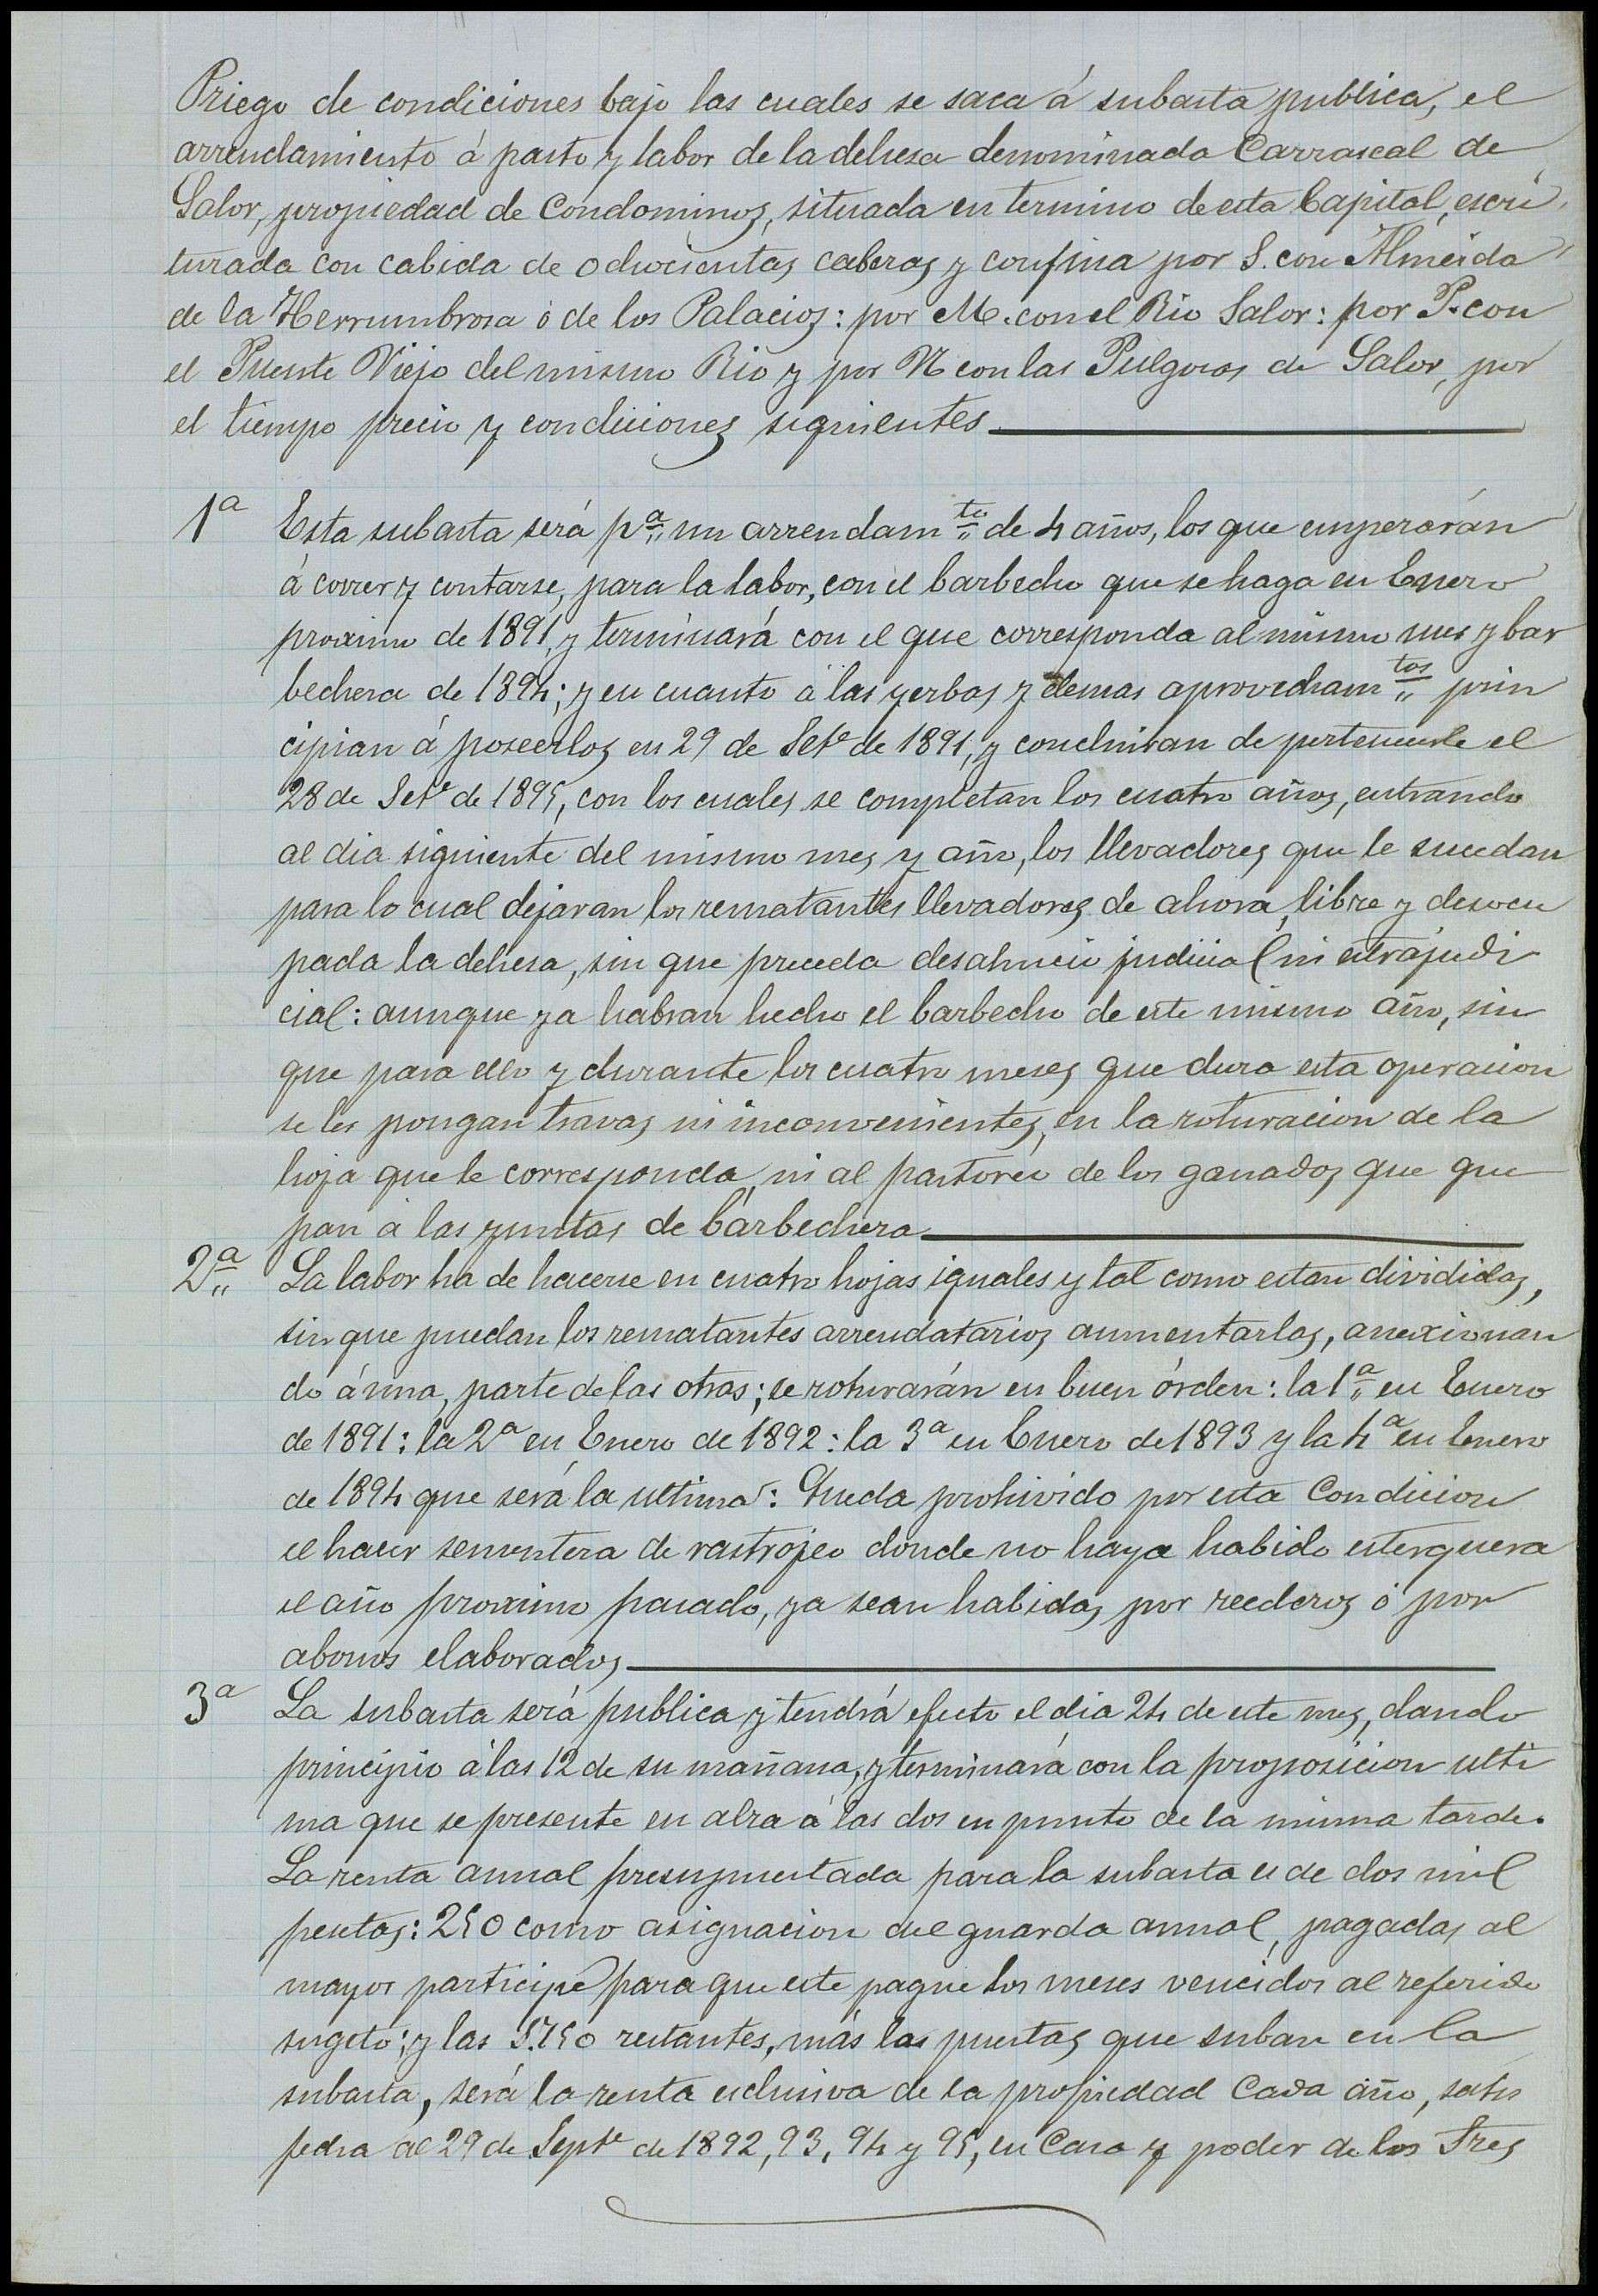 Priego de condiciones bajo las cuales se saca á subasta publica, el
arrendamiento á pasto y labor de la dehesa denominada Carrascal de
Salor, propiedad de Condominos, situada en termino de esta Capital, escri
turada con cabida de ochocientas cabezas y confina por S. con Almeida
de la Herrumbrosa ó de los Palacios: por M. con el Rio Salor: por P. con
el Puente Viejo del mismo Rio y por N con las Pulgosas de Salor, por
el tiempo precio y condiciones siguientes
1ª Esta subasta será pª un arrendamto de 4 años, los que empezarán
á correr y contarse, para la labor, con el barbecho que se haga en Enero
proximo de 1891, y terminará con el que corresponda al mismo mes y bar
bechera de 1894; y en cuanto á las yerbas y demas aprovechamtos prin
cipian á poseerlos en 29 de Sete de 1891, y concluiran de pertenecerle el
28 de Sete de 1895, con los cuales se completan los cuatro años, entrando
al dia siguiente del mismo mes y año, los llevadores que le sucedan
para lo cual dejaran los rematantes llevadores de ahora, libre y desocu
pada la dehesa, sin que preceda desahucio judicial ni estrajudi
cial: aunque ya habran hecho el barbecho de este mismo año, sin
que para ello y durante los cuatro meses que dura esta operacion
se les pongan travas ni inconvenientes, en la roturacion de la
hoja que le corresponda, ni al pastoreo de los ganados que que
pan á las yuntas de barbechera
2ª La labor ha de hacerse en cuatro hojas iguales y tal como estan divididas,
sin que puedan los rematantes arrendatarios aumentarlas, anexionan
do á una, parte de las otras; se roturarán en buen órden: la 1ª en Enero
de 1891: la 2ª en Enero de 1892: la 3ª en Enero de 1893 y la 4ª en Enero
de 1894 que será la ultima: Queda prohivido por esta Condicion
el hacer sementera de rastrojeo donde no haya habido esterquera
el año proximo pasado, ya sean habidas por reederos ó por
abonos elaborados
3ª La subasta será publica y tendrá efecto el dia 24 de este mes, dando
principio á las 12 de su mañana, y terminará con la proposicion ulti
ma que se presente en alza á las dos en punto de la misma tarde.
La renta anual presupuestada para la subasta es de dos mil
pesetas: 250 como asignacion del guarda anual, pagadas al
mayor participe para que este pague los meses vencidos al referido
sugeto; y las 1.750 restantes, más las puestas que suban en la
subasta, será la renta esclusiva de la propiedad Cada año, satis
fecha al 29 de Septe de 1892, 93, 94 y 95, en Casa y poder de los Tres